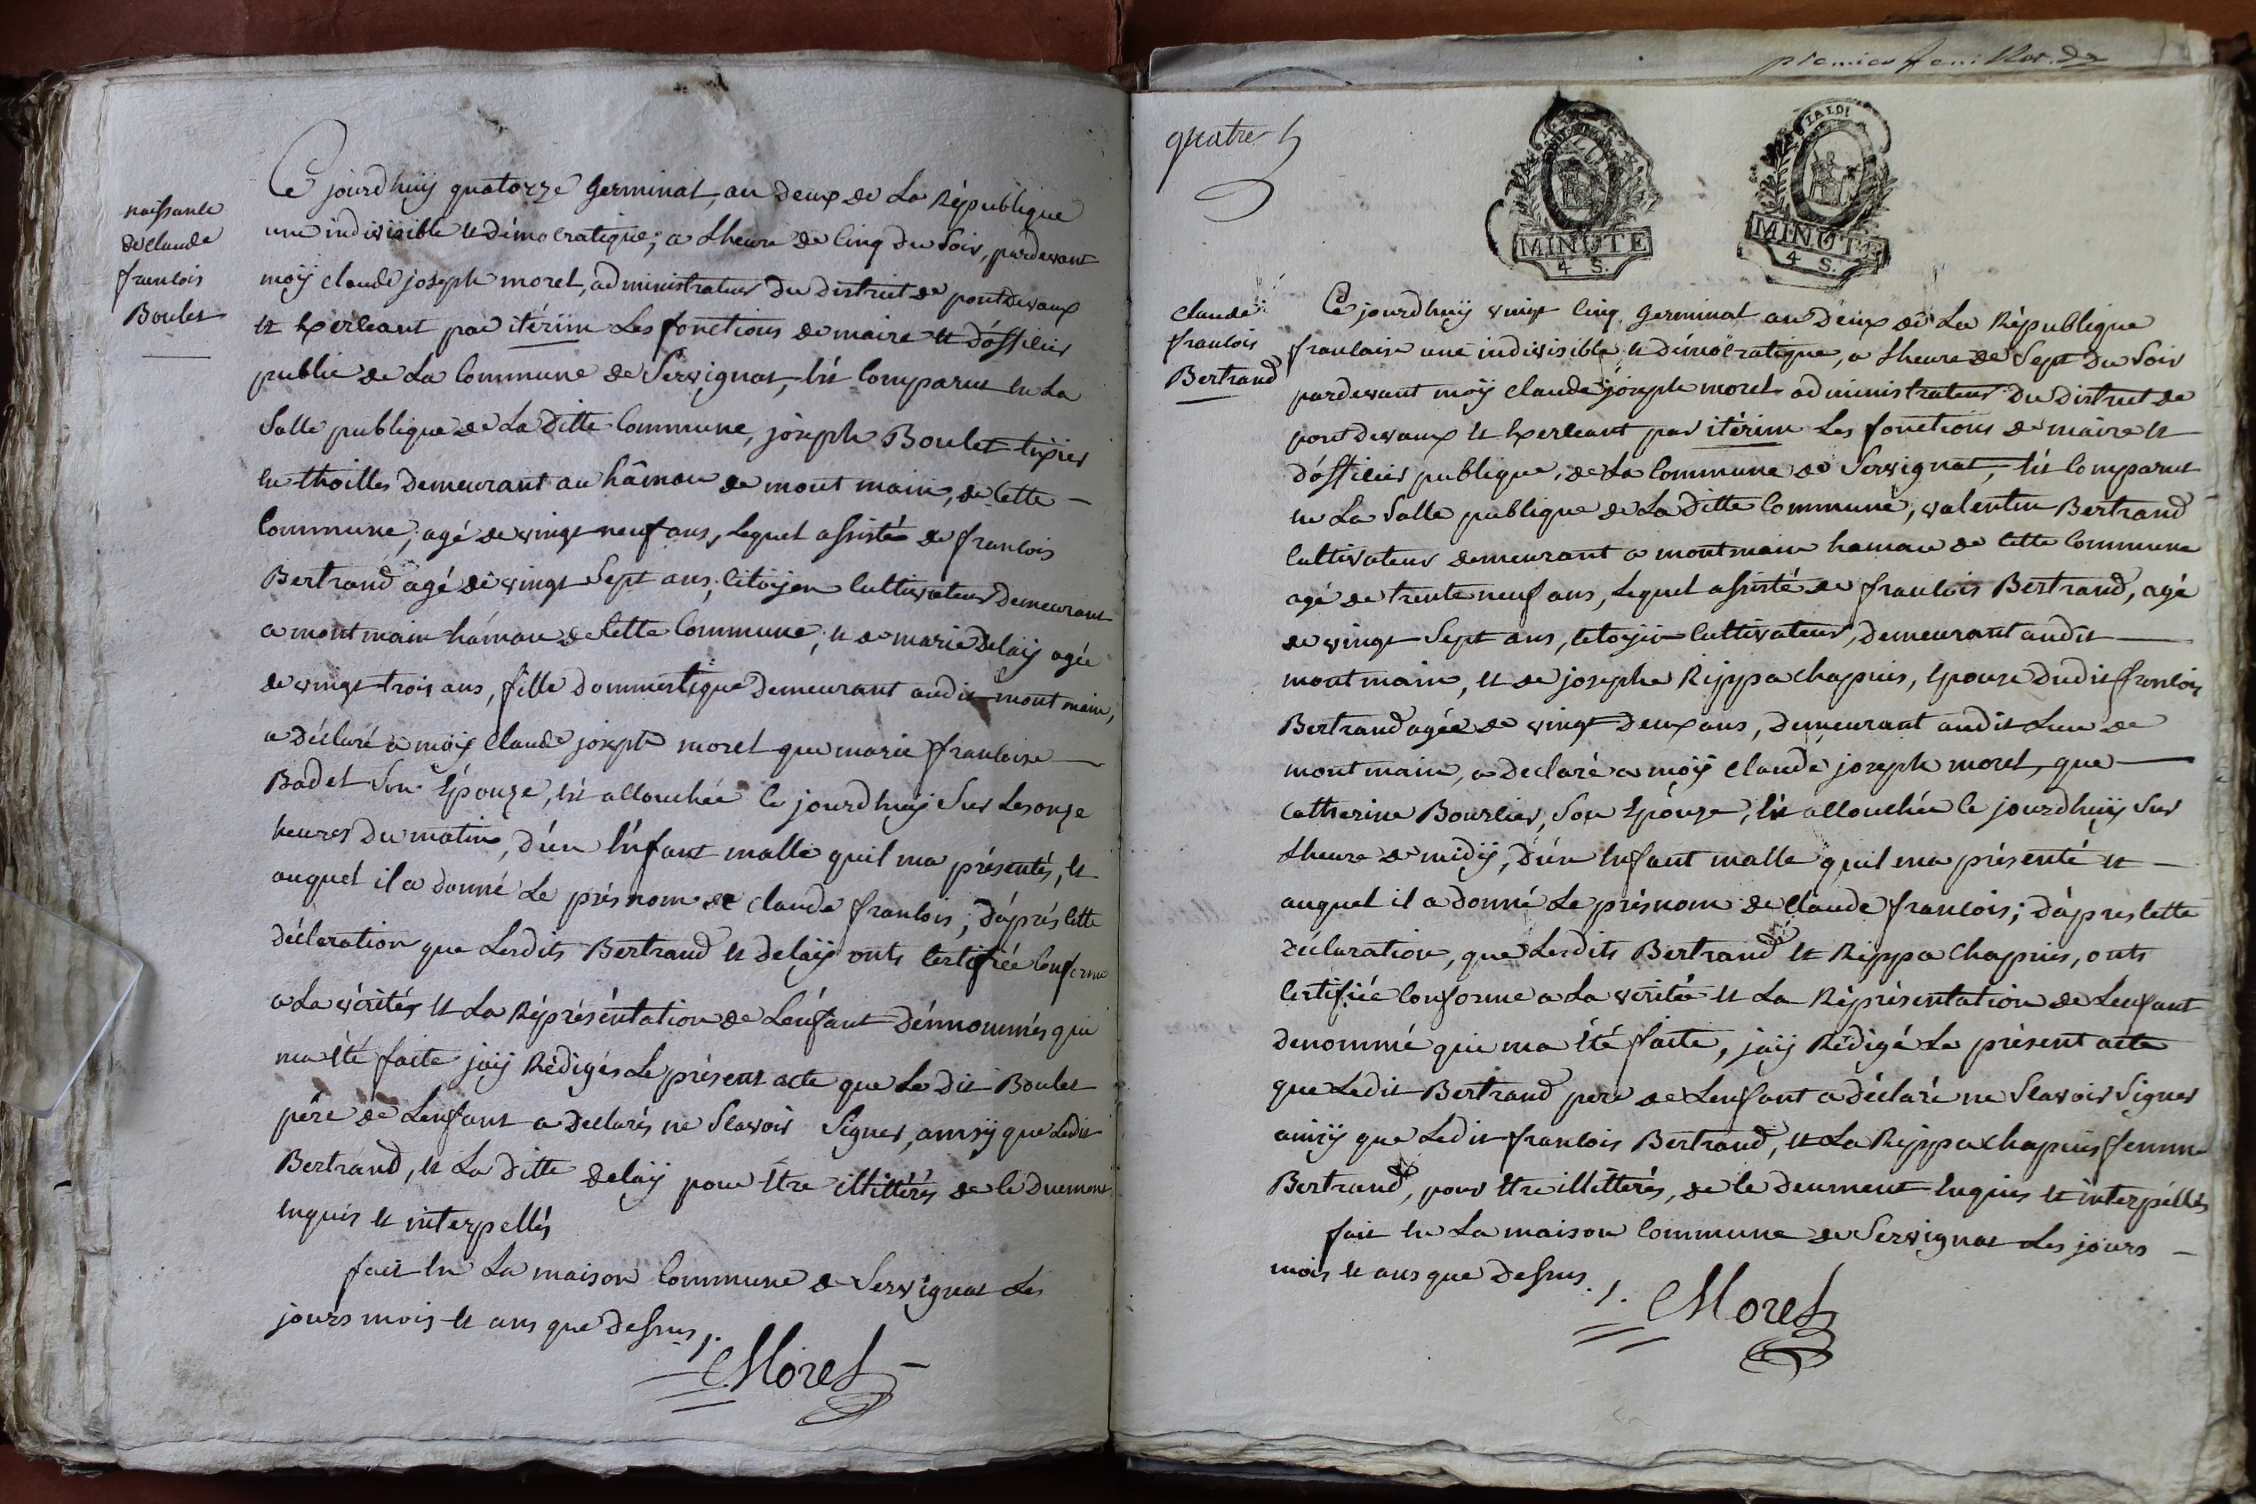 naissance
de claude
francois
Boulet
Ce jourdhuÿ quatorze germinal, an deux de La République
une indivisible et démocratique; a Lheure de cinq du soir, pardevant
moÿ claude joseph morel, administrateur du district de pontdevaux
et Exerceant par itérim Les fonctions de maire et d'officier
public de La Commune de Servignat, Est Comparut En La
Salle publique de La ditte Commune, joseph Boulet tixier
En thoilles demeurant au hâmau de mont main, de Cette
Commune, agé de vingt neuf ans, Lequel assisté de francois
Bertrand agé de vingt Sept ans, Citoÿen Cultivateur demeurant
a montmain hámau de Cette Commune, et de marie delaÿ agée
de vingt trois ans, fille dommestique demeurant audit mont main,
a déclaré a moÿ Claude joseph morel que marie francoise
Badel Son Epouze, Est accouchée Ce jourdhuÿ Sur Les onze
heures du matin, d'un Enfant malle quil ma présentés, et
auquel il a donné Le présnom de claude francois; d'après Cette
déclaration que Lesdits Bertrand et delaÿ onts Certifiée Conforme
a La véritéz et La Réprésentation de L'énfant dénnommés qui
ma Eté faite jaÿ Rédigés Le présent acte que Le dit Boulet
père de Lenfant a declarés ne Scavoir Signer, ainsÿ que Ledit
Bertrand, et La ditte delaÿ pour Etre illittérés de Ce duement
Enquis et interpellés
fait En La maison Commune de Servignat Les
jours mois et ans que dessus ./.
Morel
premier feuillet
quatre
LA LOI
MINUTE
4 S.
MINUTE
4 S.
claude
francois
Bertrand
Ce jourdhuÿ vingt Cinq germinal an deux de La République
francaise une indivisible et démocratique, a Lheure de Sept du Soir
pardevant moÿ claude joseph morel administrateur du district de
pont devaux et Exerceant par itérim Les fonctions de maire et
d'officier publique, de La Commune de Servignat, Est Comparut
En La Salle publique de La ditte Commune, valentin Bertrand
Cultivateur demeurant a montmain hamau de Cette Commune
agé de trente neuf ans, Lequel assisté de francois Bertrand, agé
de vingt Sept ans, Citoÿen Cultivateur, demeurant audit
mont main, et de josephe Rippa chapuis, Epouze dudit francois
Bertrand agée de vingt deux ans, demeurant audit Lieu de
mont main, a declaré a moÿ claude joseph morel, que
Catherine Bourlier, Son Epouze, Est accouchée Ce jourdhuÿ Sur
Lheure de midÿ, d'un Enfant malle quil ma présenté et
auquel il a donné Le présnom de Claude francois; d'apres Cette
déclaration, que Lesdits Bertrand et Rippa Chapuis, onts
Certifiée Conforme a La verité et La Réprésentation de Lenfant
denommé qui ma Eté faite, jaÿ Rédigé Le présent acte
que Ledit Bertrand pere de Lenfant a déclaré ne Scavoir Signer
ainsÿ que Ledit francois Bertrand, et La Rippa chapuis femme
Bertrand, pour Etre illittérés, de Ce deument Enquies et interpellés
fait En La maison Commune de Servignat Les jours
mois et ans que dessus ./.
Morel